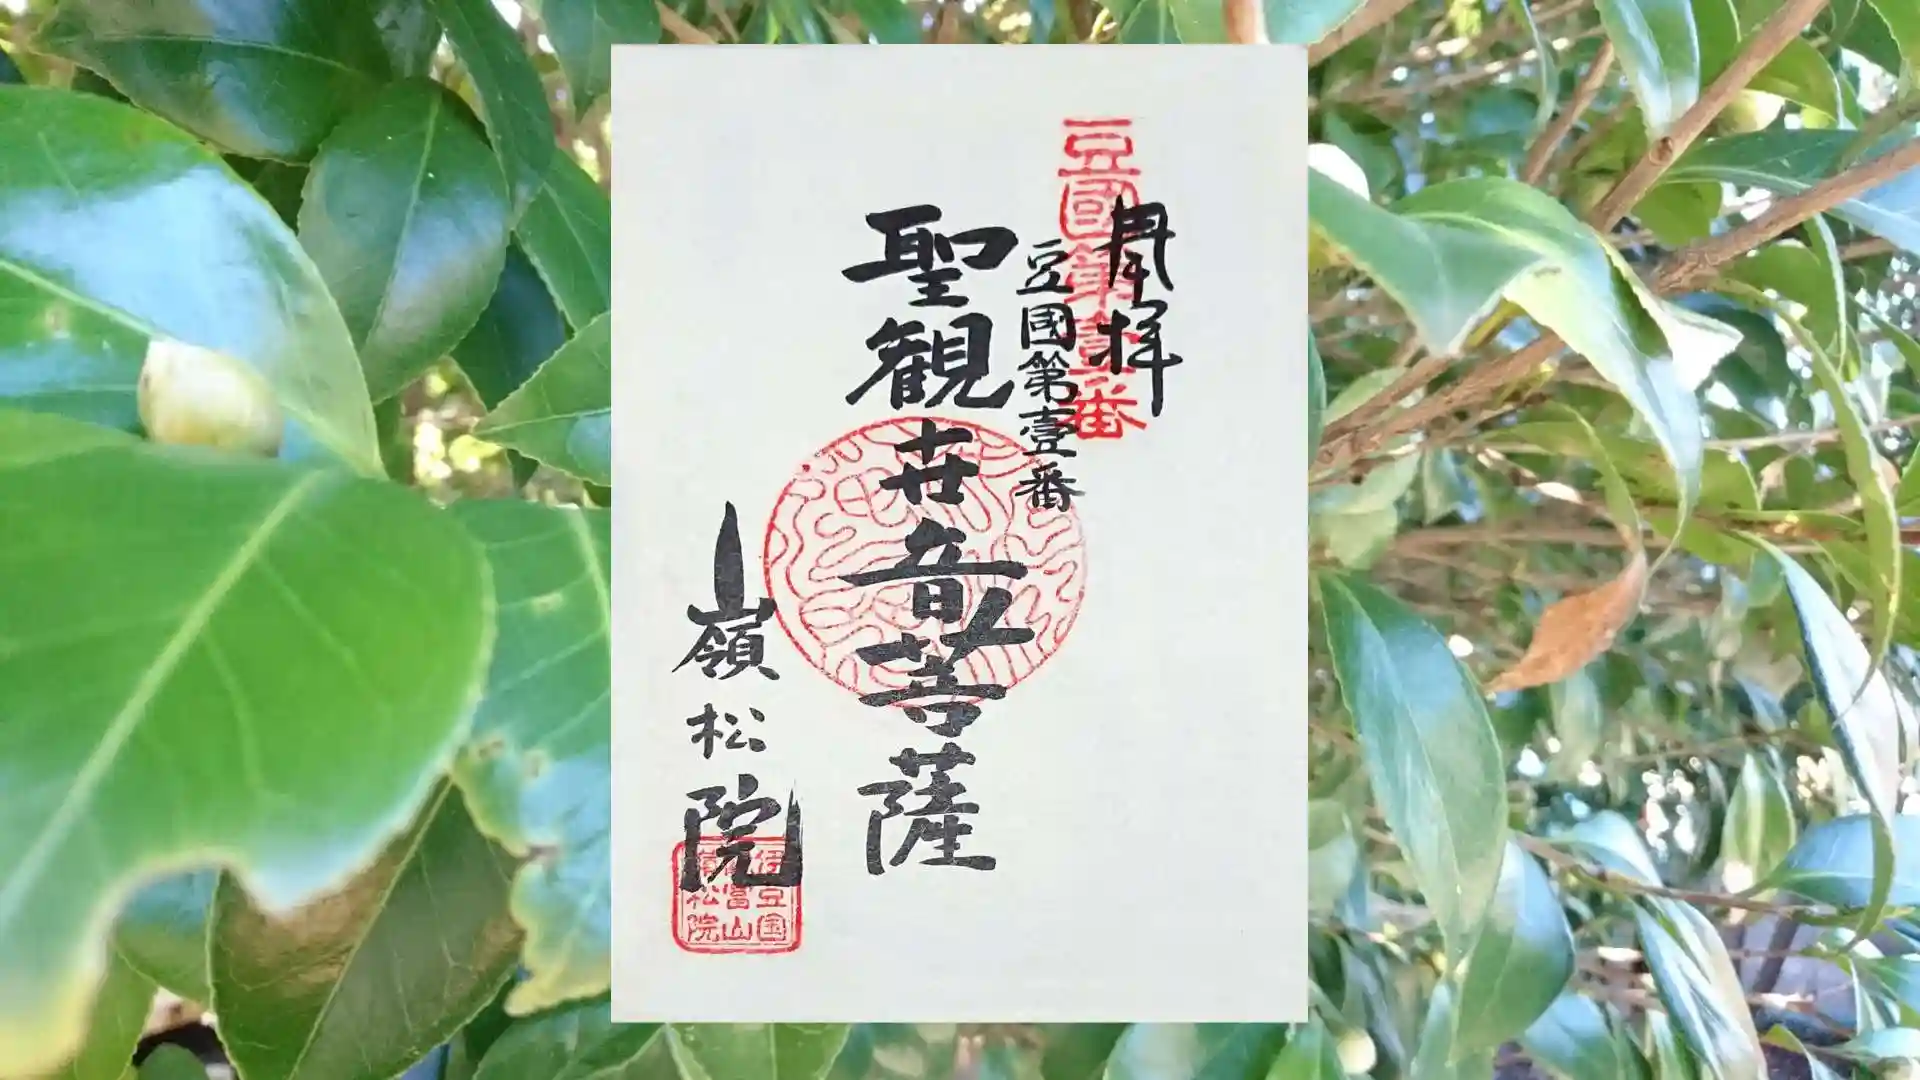 奉拝
豆國第壹番
豆國第壹番
聖観世音菩薩
嶺松院
伊豆国
富山
嶺松院